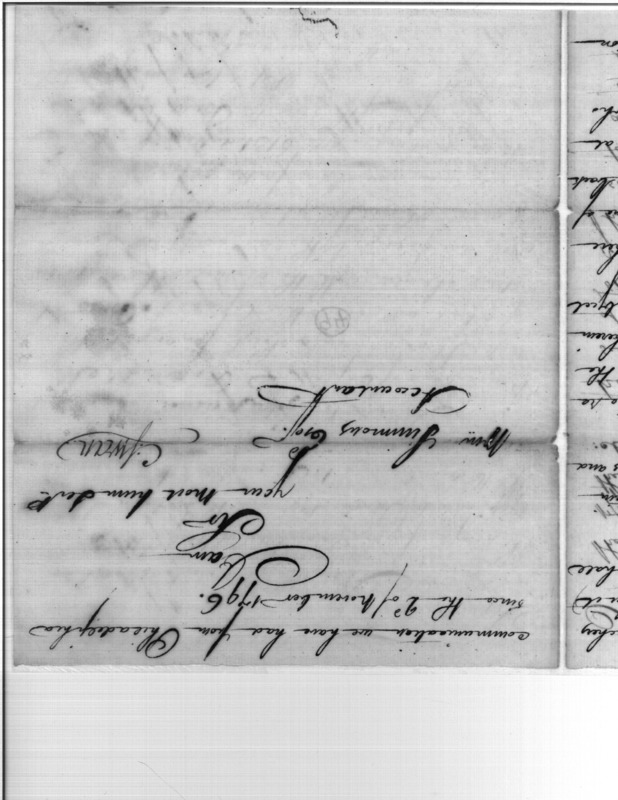 communication we have had from Philadelphia
since the 2d of November 1796.
I am
Sir
your most hum Servt
C Swan
To
Wm Simmons Esqr.
Accountant